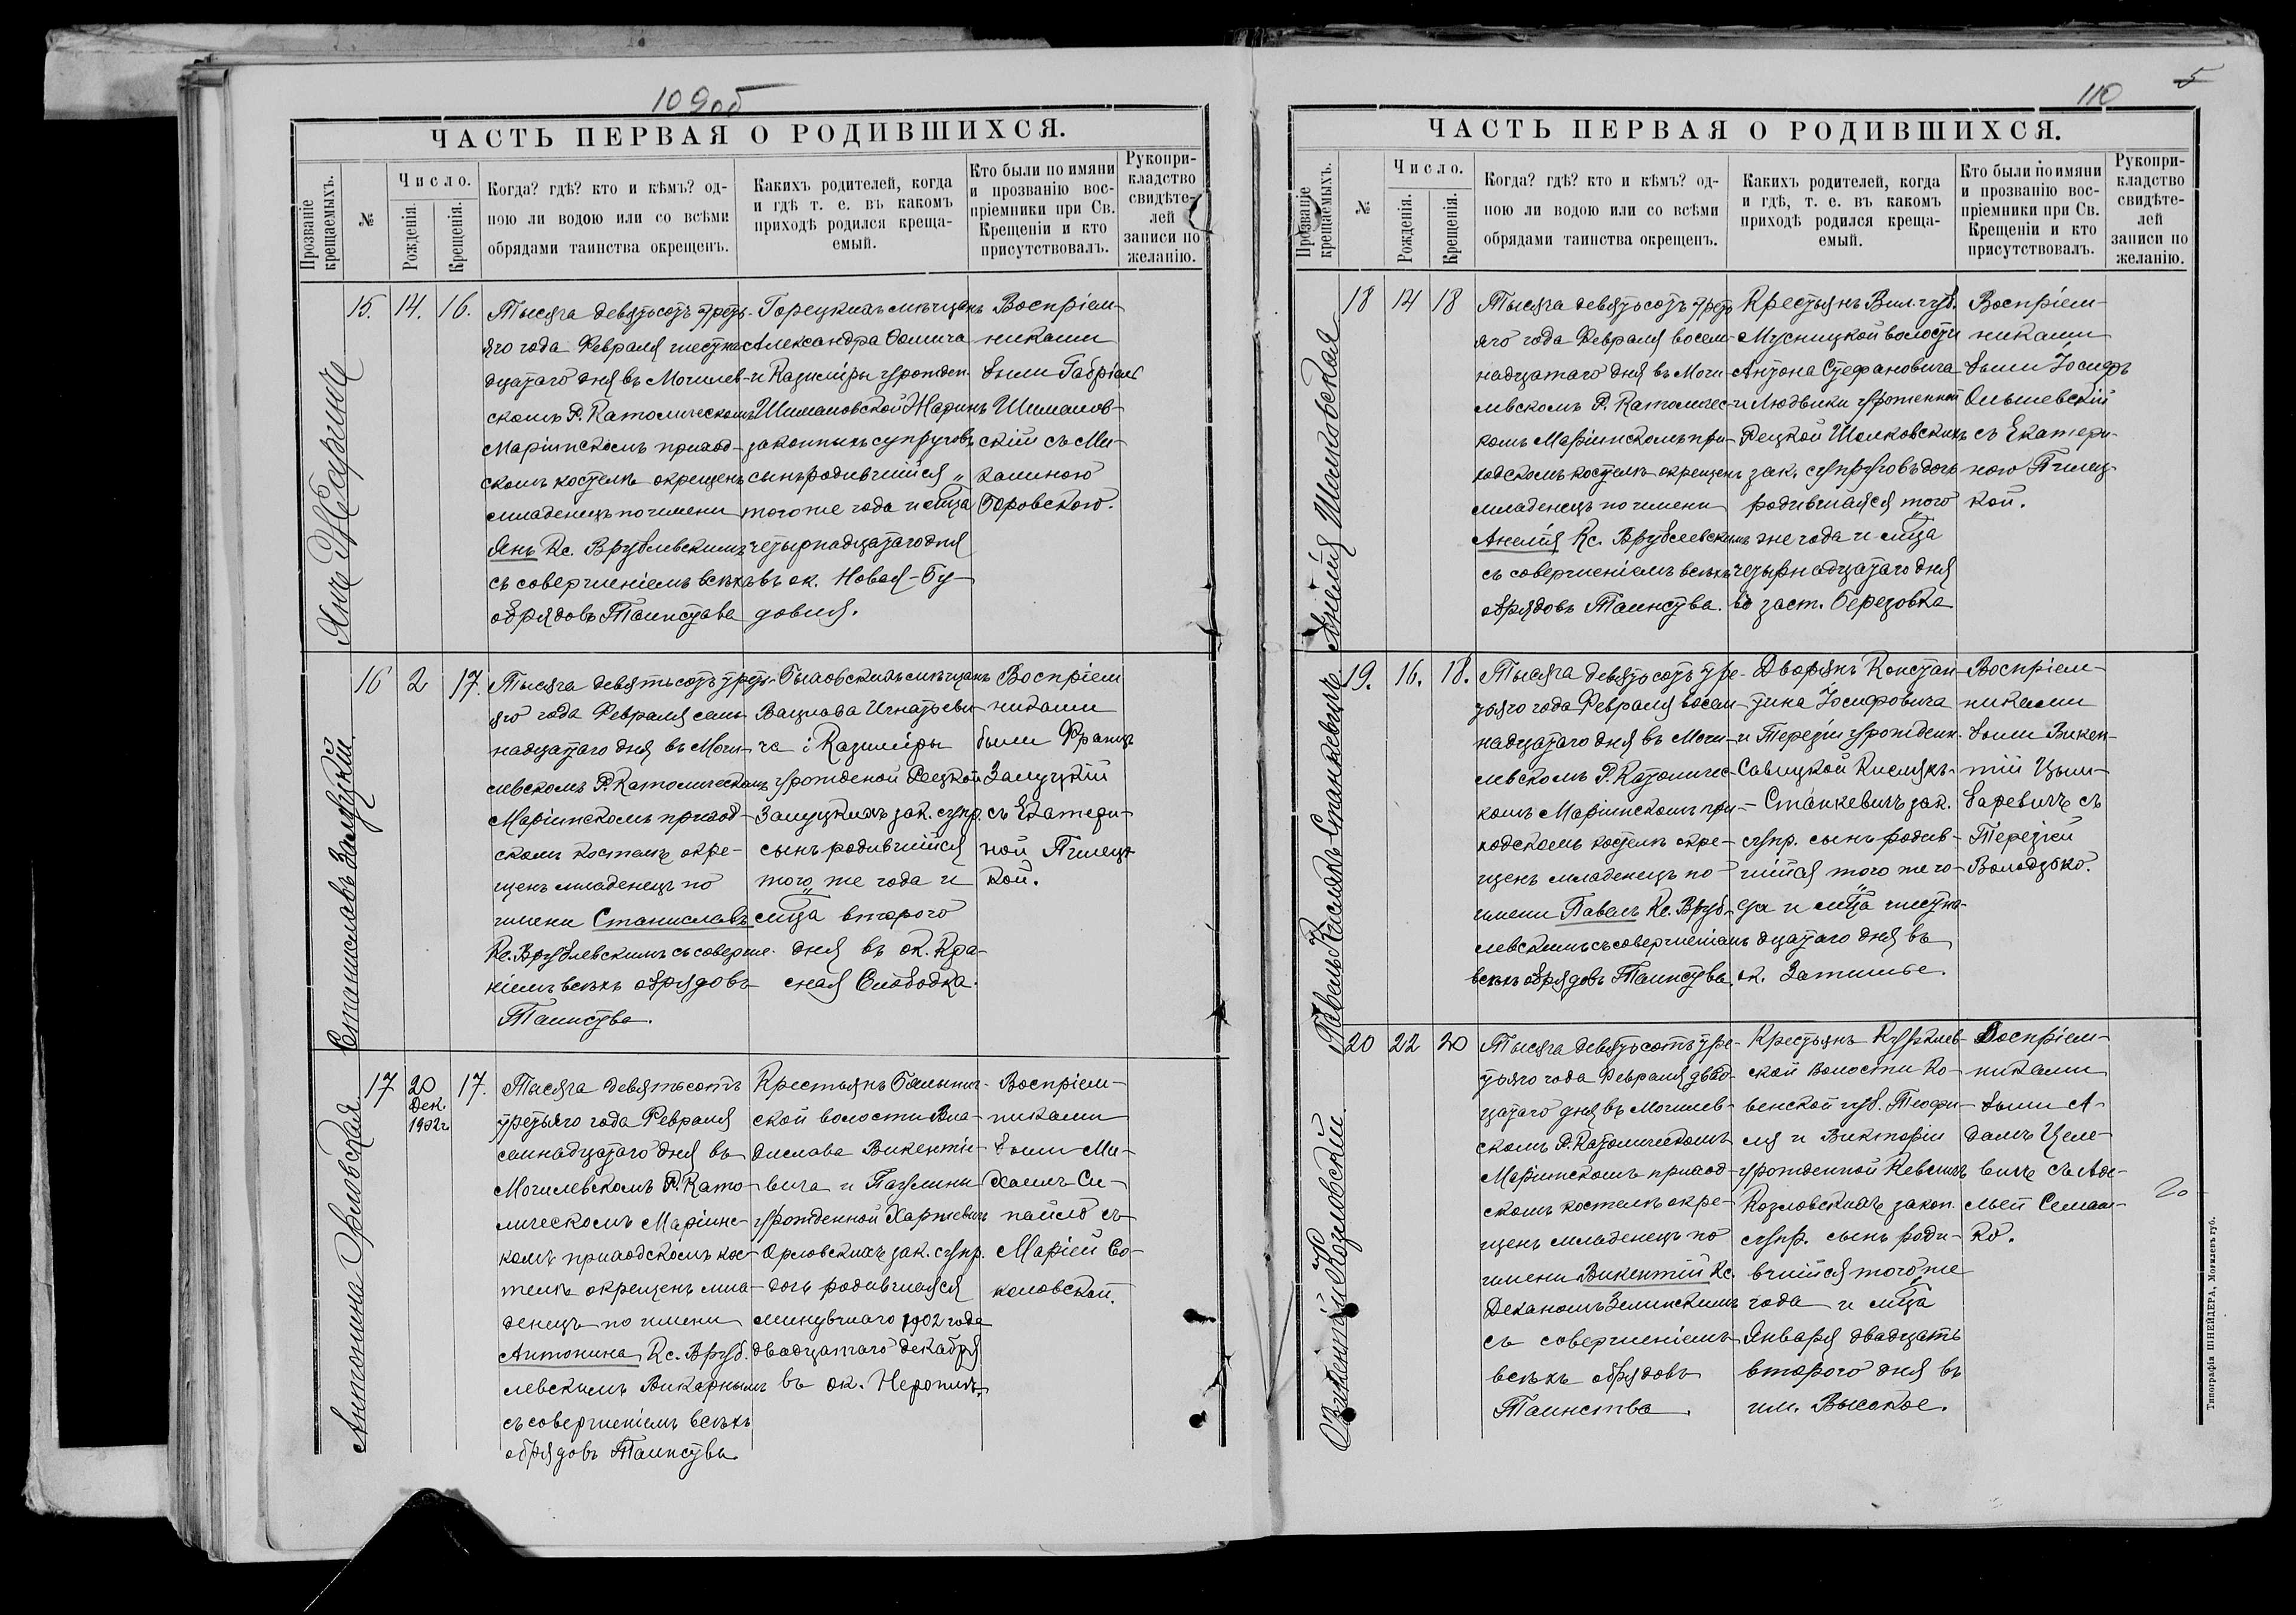 109об
ЧАСТЬ ПЕРВАЯ О РОДИВШИХСЯ.
Прозваніе крещаемыхъ.
№
Число.
Рожденія.
Крещенія.
Когда? гдѣ? кто и кѣмъ? од-
ною ли водою или со всѣми
обрядами таинства окрещенъ.
Какихъ родителей, когда
и гдѣ т. е. въ какомъ
приходѣ родился креща-
емый.
Кто были по имяни
и прозванію вос-
пріемники при Св.
Крещеніи и кто
присутствовалъ.
Рукопри-
кладство
свидѣте-
лей
записи по
желанію.
Янъ Жаринъ
15. 14. 16.
Тысяча девятьсотъ треть-
яго года Февраля шестна
дцатаго дня въ Могилев-
скомъ Р. Католическомъ
Маріинскомъ приход-
скомъ костелѣ окрещенъ
младенецъ по имени
Янъ Кс. Врублевскимъ
съ совершеніемъ всѣхъ
обрядовъ Таинства
Горецкихъ мѣщанъ
Александра Фомича
и Казиміры урожден.
Шимановской Жаринъ
законныхъ супруговъ
сынъ родившійся
того же года и м-ца
четырнадцатаго дня
въ ок. Новая-Бу-
довля.
Воспріем-
никами
были Габріель
Шиманов-
скій съ Ми-
халиною
Боровскою.
Станиславъ Залуцкій
16 2 17.
Тысяча девятьсотъ треть-
яго года Февраля сем-
надцатаго дня въ Моги-
левскомъ Р. Католическомъ
Маріинскомъ приход-
скомъ костелѣ окре-
щенъ младенецъ по
имени Станиславъ
Кс. Врублевскимъ съ соверше-
ніемъ всѣхъ обрядовъ
Таинства.
Быховскихъ мѣщанъ
Вацлава Игнатьеви-
ча і Казиміры
урожденой Рецкой
Залуцкихъ зак. супр.
сынъ родившійся
того же года и
м-ца второго
дня въ ок. Кра-
сная Слободка.
Воспріем
никами
были Францъ
Залуцкій
съ Екатери-
ной Пшец-
кой.
Антонина Орловская
17 20 Дек. 1902г. 17.
Тысяча девятьсотъ
третьяго года Февраля
семнадцатаго дня въ
Могилевскомъ Р. Като-
лическомъ Маріинс-
комъ приходскомъ кос-
телѣ окрещенъ мла-
денецъ по имени
Антонина Кс. Вруб-
левскимъ Викарнымъ
съ совершеніемъ всѣхъ
обрядовъ Таинства.
Крестьянъ Бялынич-
ской волости Вла-
дислава Викентіе-
вича и Паулины
урожденной Харкевичъ
Орловскихъ зак. супр.
дочь родившаяся
минувшаго 1902 года
двадцатаго декабря
въ ок.
Воспріем-
никами
были Ми-
хаилъ Си-
пайло съ
Маріей Со-
коловской.
110
5
ЧАСТЬ ПЕРВАЯ О РОДИВШИХСЯ.
Прозваніе крещаемыхъ.
№
Число.
Рожденія.
Крещенія.
Когда? гдѣ? кто и кѣмъ? од-
ною ли водою или со всѣми
обрядами таинства окрещенъ.
Какихъ родителей, когда
и гдѣ, т. е. въ какомъ
приходѣ родился креща-
емый.
Кто были по имяни
и прозванію вос-
пріемники при Св.
Крещеніи и кто
присутствовалъ.
Рукопри-
кладство
свидѣте-
лей
записи по
желанію.
Анелія Шолковская
18 14 18
Тысяча девятьсотъ треть
яго года Февраля восем-
надцатаго дня въ Моги-
левскомъ Р. Католичес-
комъ Маріинскомъ при-
ходскомъ костелѣ окрещенъ
младенецъ по имени
Анелія Кс. Врублевскимъ
съ совершеніемъ всѣхъ
обрядовъ Таинства.
Крестьянъ Вил. губ.
Мусницкой волости
Антона Стефановича
и Людвики урожденной
Рецкой Шолковскихъ
зак. супруговъ дочь
родившаяся того
же года и м-ца
четырнадцатаго дня
въ заст. Березовка
Воспріем-
никами
были Іосифъ
Ольшевскій
съ Екатери-
ною Пшец-
кой.
Павелъ Кислякъ-Станкевичъ
19. 16. 18.
Тысяча девятьсотъ тре-
тьяго года Февраля восем-
надцатаго дня въ Моги-
левскомъ Р. Католичес-
комъ Маріинскомъ при-
ходскомъ костелѣ окре-
щенъ младенецъ по
имени Павелъ Кс. Вруб-
левскимъ съ совершеніемъ
всѣхъ обрядовъ Таинства.
Дворянъ Констан-
тина Іосифовича
и Терезіи урожденн.
Савицкой Кислякъ-
Станкевичъ зак.
супр. сынъ родив-
шійся того же го-
да и м-ца шестна-
дцатаго дня въ
ок. Затишье.
Воспріем-
никами
были Викен-
тій Цым-
баревичъ съ
Терезіей
Володзько.
Викентій Козловскій
20 22 20
Тысяча девятьсотъ тре-
тьяго года Февраля двад-
цатаго дня въ Могилев-
скомъ Р. Католическомъ
Маріинскомъ приход-
скомъ костелѣ окре-
щенъ младенецъ по
имени Викентій Кс.
Деканомъ Зелинскимъ
съ совершеніемъ
всѣхъ обрядовъ
Таинства.
Крестьянъ Курклев-
ской волости Ко-
венской губ. Теофи-
ля и Викторіи
урожденной Кевличъ
Козловскихъ закон.
супр. сынъ роди-
вшійся того же
года и м-ца
Января двадцать
второго дня въ
им. Высокое.
Воспріем-
никами
были А-
дамъ Целе-
вичъ съ Аде-
лей Семаш-
ко.
20
Типографія ШНЕЙДЕРА, Могилевъ губ.